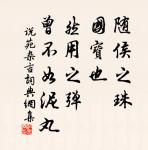 随侯之珠
國寳也
然用之弹
曾不如泥丸
说苑杂言词典網集